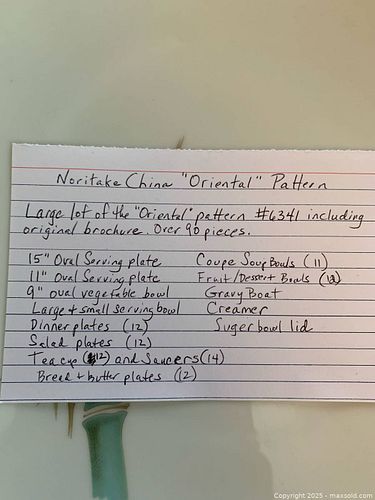 Noritake China "Oriental" Pattern
Large lot of the "Oriental" pattern #6341 including
original brochure. Over 90 pieces.
15" Oval Serving plate
11" Oval Serving plate
9" oval vegetable bowl
Large + small serving bowl
Dinner plates (12)
Salad plates (12)
Tea cup (12) and Saucers (14)
Bread + butter plates (12)
Coupe Soup Bowls (11)
Fruit/Dessert Bowls
Gravy Boat
Creamer
Sugar bowl lid
Copyright 2025 - maxsold.com